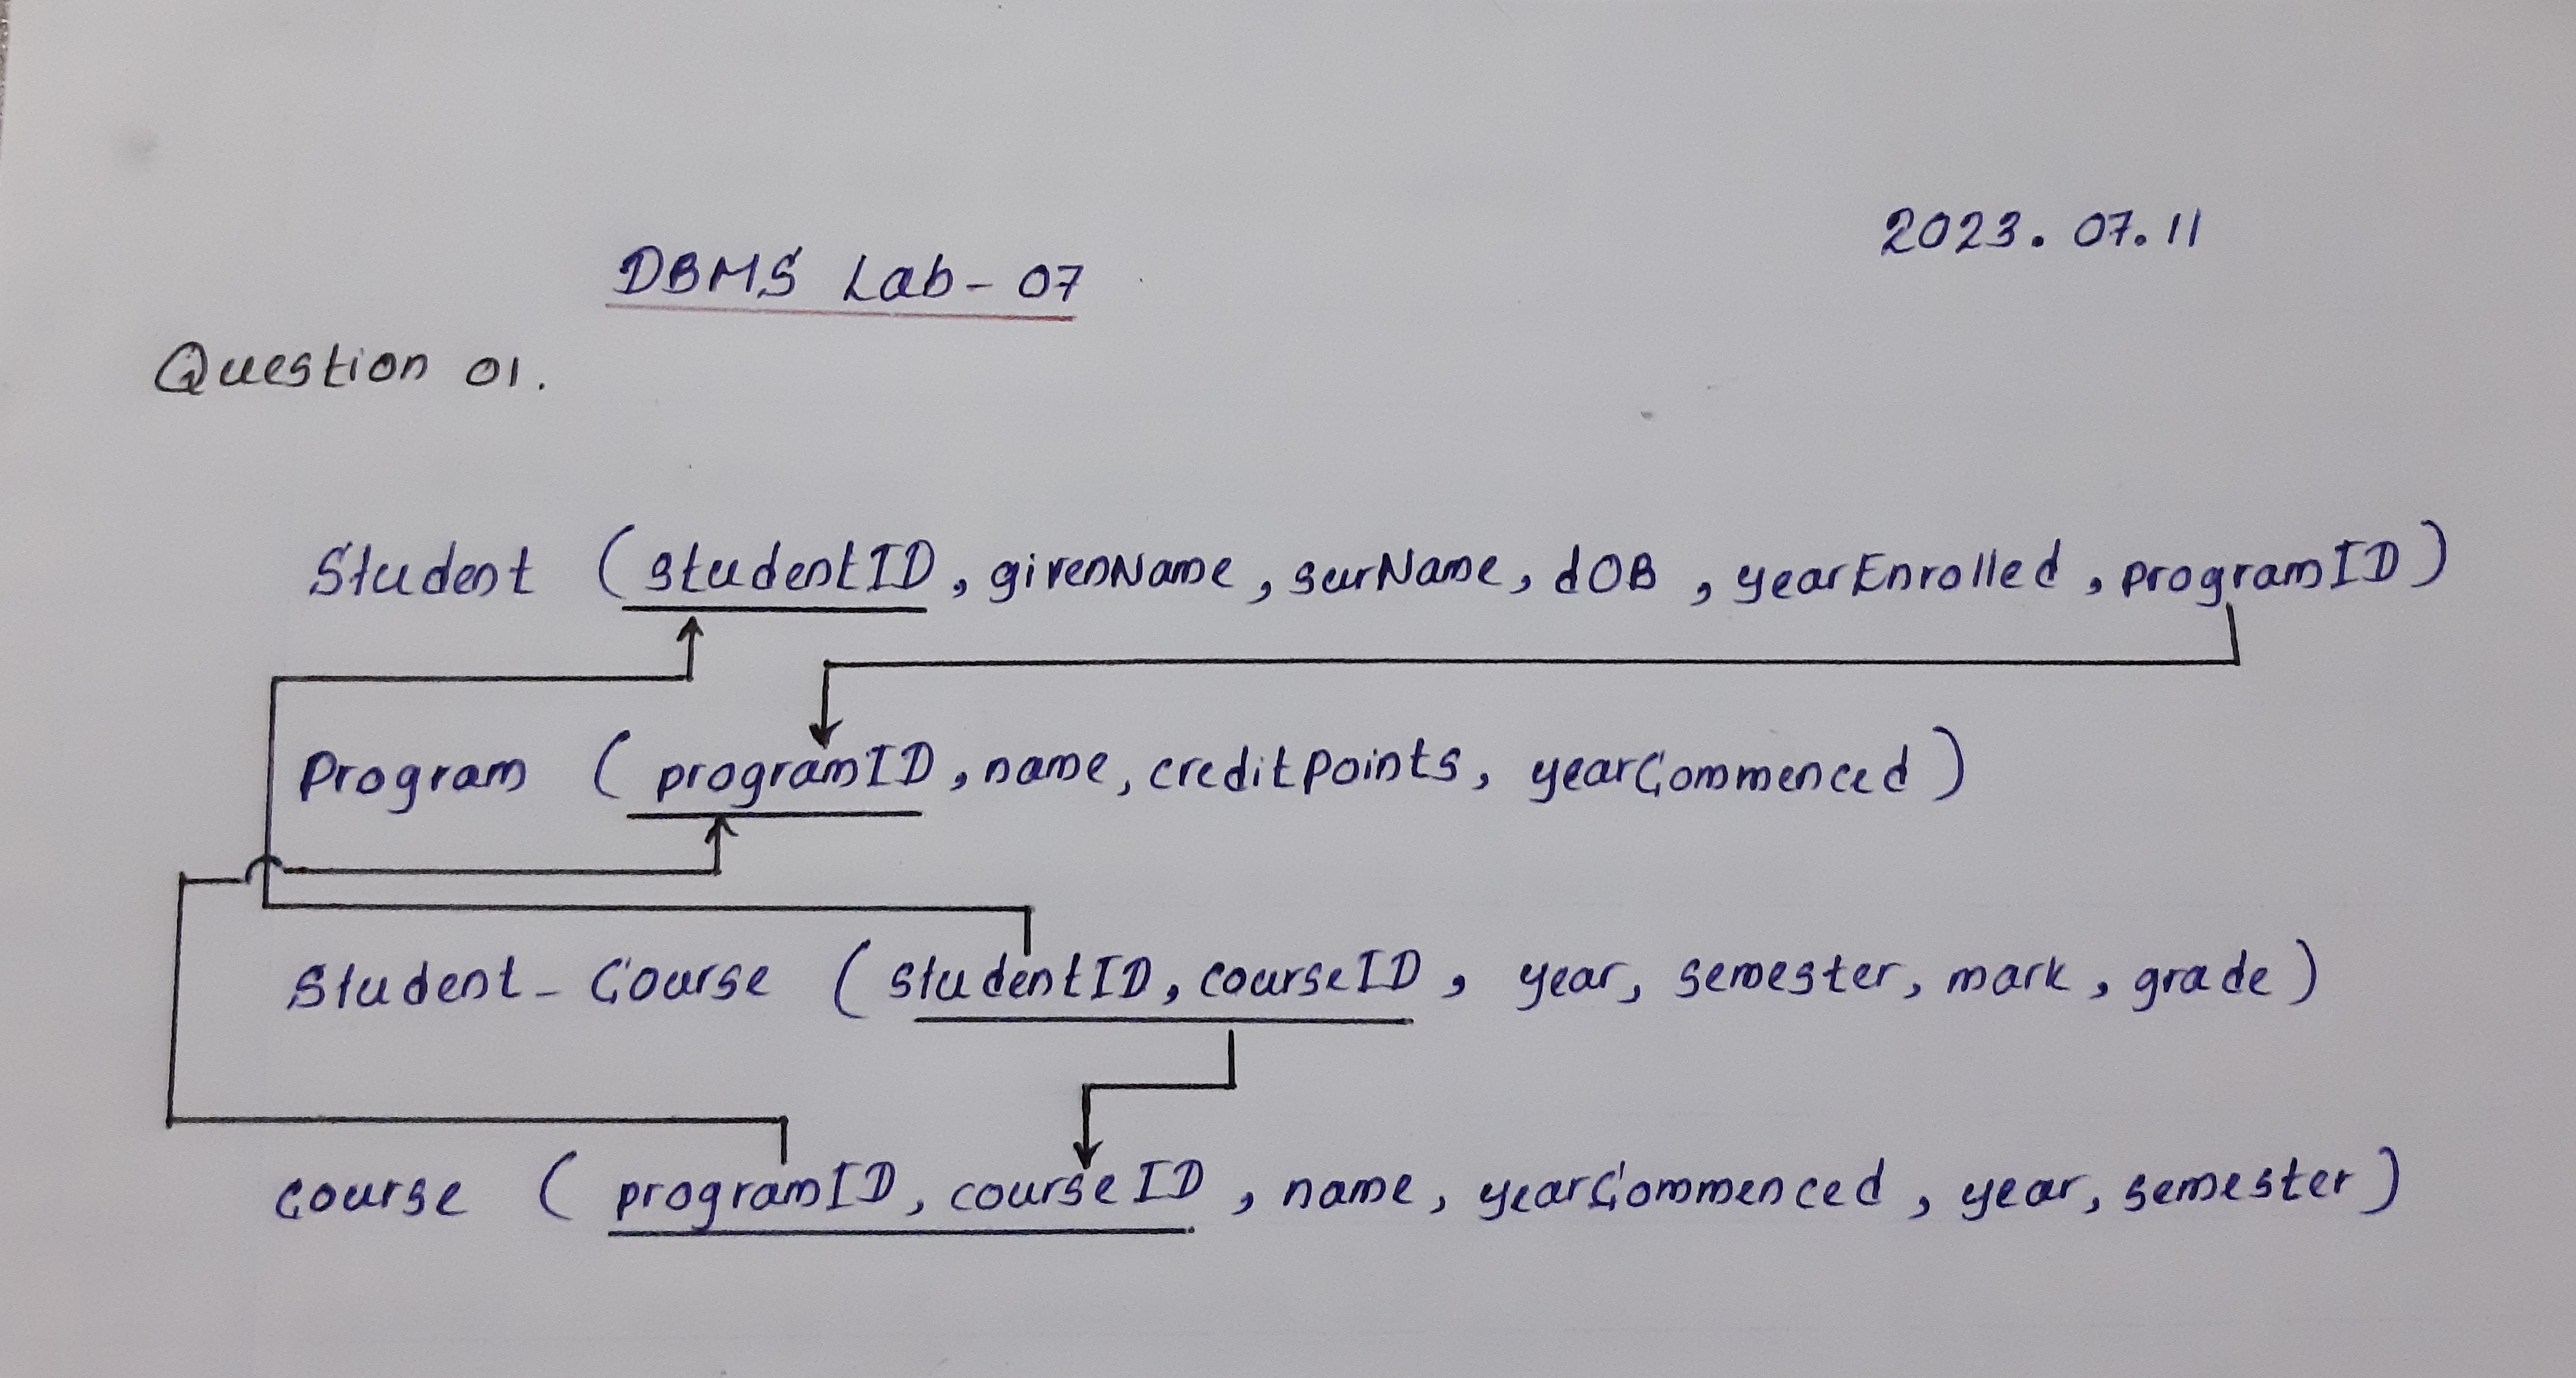 2023.07.11
DBMS Lab-07
Question 01.
Student (studentID, givenName, surName, dOB, yearEnrolled, programID)
Program (programID, name, creditPoints, yearCommenced)
Student-Course (studentID, courseID, year, semester, mark, grade)
Course (programID, courseID, name, yearCommenced, year, semester)